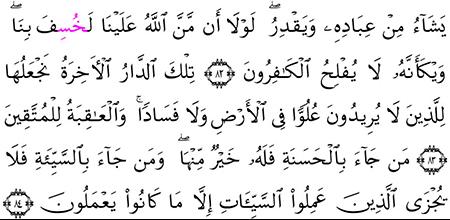 يَشَآءُ مِنْ عِبَادِهِۦ وَيَقْدِرُۖ لَوْلَآ أَن مَّنَّ ٱللَّهُ عَلَيْنَا لَخُسِفَ بِنَاۖ
وَيْكَأَنَّهُۥ لَا يُفْلِحُ ٱلْكَٰفِرُونَ ﴿٨٢﴾ تِلْكَ ٱلدَّارُ ٱلْأَخِرَةُ نَجْعَلُهَا
لِلَّذِينَ لَا يُرِيدُونَ عُلُوًّا فِى ٱلْأَرْضِ وَلَا فَسَادًاۚ وَٱلْعَٰقِبَةُ لِلْمُتَّقِينَ
﴿٨٣﴾ مَن جَآءَ بِٱلْحَسَنَةِ فَلَهُۥ خَيْرٌ مِّنْهَاۖ وَمَن جَآءَ بِٱلسَّيِّئَةِ فَلَا
يُجْزَى ٱلَّذِينَ عَمِلُوا۟ ٱلسَّيِّـَٔاتِ إِلَّا مَا كَانُوا۟ يَعْمَلُونَ ﴿٨٤﴾